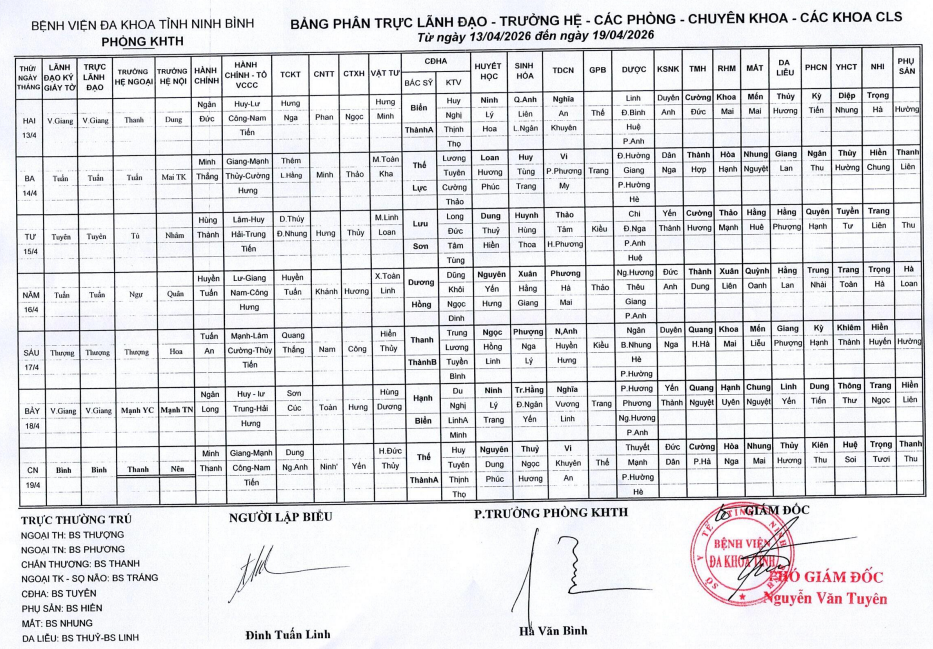 BỆNH VIỆN ĐA KHOA TỈNH NINH BÌNH
PHÒNG KHTH
BẢNG PHÂN TRỰC LÃNH ĐẠO - TRƯỞNG HỆ - CÁC PHÒNG - CHUYÊN KHOA - CÁC KHOA CLS
Từ ngày 13/04/2026 đến ngày 19/04/2026
THỨ/ NGÀY THÁNG | LÃNH ĐẠO KÝ GIẤY TỜ | TRỰC LÃNH ĐẠO | TRƯỞNG HỆ NGOẠI | TRƯỞNG HỆ NỘI | HÀNH CHÍNH | HÀNH CHÍNH - TỔ VCCC | TCKT | CNTT | CTXH | VẬT TƯ | CĐHA BÁC SỸ | KTV | HUYẾT HỌC | SINH HÓA | TDCN | GPB | DƯỢC | KSNK | TMH | RHM | MẮT | DA LIỄU | PHCN | YHCT | NHI | PHỤ SẢN
Ngân Huy-Lư Hưng Hưng Biển Huy Ninh Q.Anh Nghĩa Linh Duyên Cường Khoa Mến Thủy Kỳ Diệp Trọng
HAI V.Giang V.Giang Thanh Dung Đức Công-Nam Nga Phan Ngọc Minh Nghị Lý Liên An Thế Đ.Bình Anh Đức Mai Mai Hương Tiến Nhung Hà Hường
13/4 Tiến ThànhA Thịnh Hoa L.Ngân Khuyên Huệ
Thọ P.Anh
Minh Giang-Mạnh Thêm M.Toản Thế Lương Loan Huy Vi Đ.Hường Dân Thành Hòa Nhung Giang Ngân Thùy Hiền Thanh
BA Tuấn Tuấn Tuấn Mai TK Thắng Thủy-Cường L.Hằng Minh Thảo Kha Tuyên Hương Tùng P.Phương Trang Giang Nga Hợp Hạnh Nguyệt Lan Thu Hường Chung Liên
14/4 Hưng Lực Cường Phúc Trang My P.Hường
Thảo Hè
Hùng Lâm-Huy D.Thúy M.Linh Lưu Long Dung Huynh Thảo Chi Yến Cường Thảo Hằng Hằng Quyên Tuyển Trang
TƯ Tuyên Tuyên Tú Nhâm Thành Hải-Trung Đ.Nhung Hưng Thủy Loan Đức Thuỷ Hùng Tâm Kiều Đ.Nga Thành Hương Mạnh Huê Phượng Hạnh Tư Liên Thu
15/4 Tiến Sơn Tâm Hiền Thoa H.Phương P.Anh
Tùng Huệ
Huyền Lư-Giang Huyền X.Toản Dương Dũng Nguyên Xuân Phương Ng.Hương Đức Thành Xuân Quỳnh Hằng Trung Trang Trọng Hà
NĂM Tuấn Tuấn Ngự Quân Tuấn Nam-Công Tuấn Khánh Hương Linh Khôi Yến Hằng Hà Thảo Thêu Anh Dung Liên Oanh Lan Nhài Toàn Hà Loan
16/4 Hưng Hồng Ngọc Hưng Giang Mai Giang
Dinh P.Anh
Tuấn Mạnh-Lâm Quang Hiền Thanh Trung Ngọc Phượng N,Anh Ngân Duyên Quang Khoa Mến Giang Kỳ Khiêm Hiền
SÁU Thượng Thượng Thượng Hoa An Cường-Thủy Thắng Nam Công Thủy Lương Hồng Nga Huyền Kiều B.Nhung Nga H.Hà Mai Liễu Phượng Hạnh Thành Huyến Hường
17/4 Tiến ThànhB Tuyển Linh Lý Hưng Hè
Bình P.Hường
Ngân Huy - lư Sơn Hùng Hạnh Du Ninh Tr.Hằng Nghĩa P.Hương Yến Quang Hạnh Chung Linh Dung Thông Trang Hiền
BẢY V.Giang V.Giang Mạnh YC Mạnh TN Long Trung-Hải Cúc Toàn Hưng Dương Nghị Lý Đ.Ngân Vương Trang Phương Thành Nguyệt Uyên Nguyệt Yến Tiến Thư Ngọc Liên
18/4 Hưng Biển LinhA Trang Yến Linh Ng.Hương
Minh P.Anh
Minh Giang-Mạnh Dung H.Đức Thế Huy Nguyên Thuỷ Vi Thuyết Đức Cường Hòa Nhung Thủy Kiên Huệ Trọng Thanh
CN Bình Bình Thanh Nên Thanh Công-Nam Ng.Anh Ninh' Yến Thủy Tuyên Dung Ngọc Khuyên Thế Mạnh Dân P.Hà Nga Mai Hương Thu Soi Tươi Thu
19/4 Tiến ThànhA Thịnh Phúc Hương An P.Hường
Thọ Hè
TRỰC THƯỜNG TRÚ
NGƯỜI LẬP BIỂU
P.TRƯỞNG PHÒNG KHTH
GIÁM ĐỐC
NGOẠI TH: BS THƯỢNG
NGOẠI TN: BS PHƯƠNG
CHẤN THƯƠNG: BS THANH
NGOẠI TK - SỌ NÃO: BS TRÁNG
CĐHA: BS TUYÊN
PHỤ SẢN: BS HIỀN
MẮT: BS NHUNG
DA LIỄU: BS THUỶ-BS LINH
BỆNH VIỆN
ĐA KHOA TỈNH
PHÓ GIÁM ĐỐC
Nguyễn Văn Tuyên
Đinh Tuấn Linh
Hà Văn Bình